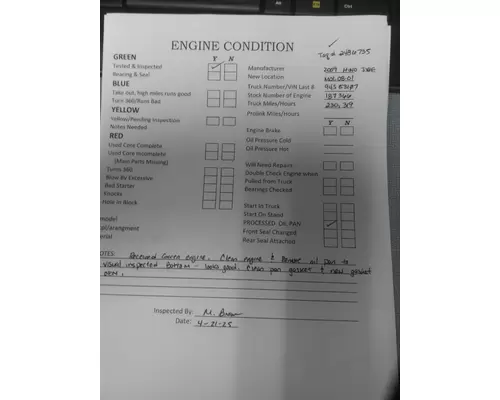 Ctrl
ENGINE CONDITION
Tag # 2486735
GREEN Y N
Tested & Inspected
Bearing & Seal
BLUE
Take out, high miles runs good
Turn 360/Runs Bad
YELLOW
Yellow/Pending Inspection
Notes Needed
RED
Used Core Complete
Used Core Incomplete
(Main Parts Missing)
Turns 360
Blow By Excessive
Bad Starter
Knocks
Hole in Block
model
rial
Manufacturer 2009 HINO
New Location
Truck Number/VIN Last 8
Stock Number of Engine 187366
Truck Miles/Hours 230,319
Prolink Miles/Hours
Y N
Engine Brake
Oil Pressure Cold
Oil Pressure Hot
Will Need Repairs
Double Check Engine when
Pulled from Truck
Bearings Checked
Start In Truck
Start On Stand
PROCESSED OIL PAN
Front Seal Changed
Rear Seal Attached
NOTES: Received Green Engine. Clean engine & Remove oil pan to
visual inspected Bottom - looks good. Clean pan gasket & new gasket
Inspected By: M.
Date: 4-21-25